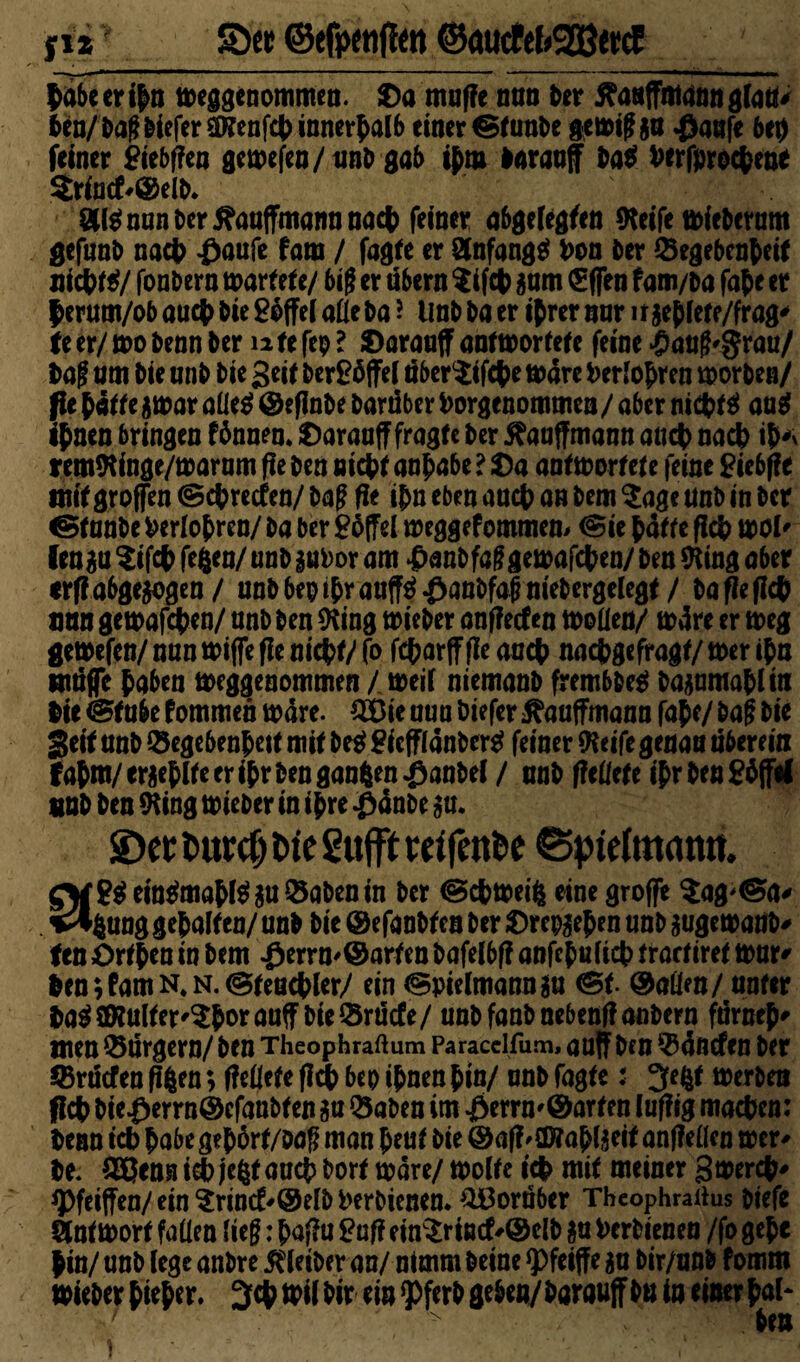 512 Der Gespensten Gauckel-Werck
habe er ihn weggenommen. Da muste nun der Kauffmann glau-
ben/daß dieser Mensch innerhalb einer Stunde gewiß zu Hause bey
seiner Liebsten gewesen/ und gab ihm darauff das versprochene
Trinck-Geld.
Als nun der Kauffmann nach seiner abgelegten Reise wiederum
gesund nach Hause kam / sagte er Anfangs von der Begebenheit
nichts/ sondern wartete/ biß er übern Tisch zum Essen kam/da sahe er
herum/ob auch die Löffel alle da? Und da er ihrer nur 11 zehlete/frag-
te er/ wo denn der 12te sey? Darauff antwortete seine Hauß-Frau/
daß um die und die Zeit der Löffel über Tische wäre verlohren worden/
sie hätte zwar alles Gesinde darüber vorgenommen / aber nichts aus
ihnen bringen können. Darauff fragte der Kauffmann auch nach ih-
rem Ringe/warum sie den nicht anhabe? Da antwortete seine Liebste
mit grossen Schrecken/ daß sie ihn eben auch an dem Tage und in der
Stunde verlohren/ da der Löffel weggekommen. Sie hätte sich wol-
len zu Tisch setzen/ und zuvor am Handfaß gewaschen/ den Ring aber
erst abgezogen / und bey ihr auffs Handfaß niedergelegt / da sie sich
nun gewaschen/ und den Ring wieder anstecken wollen/ wäre er weg
gewesen/ nun wisse sie nicht/ so scharff sie auch nachgefragt/ wer ihn
müsse haben weggenommen / weil niemand frembdes dazumahl in
die Stube kommen wäre. Wie nun dieser Kauffmann sahe/ daß die
Zeit und Begebenheit mit des Liefländers seiner Reise genau überein
kahm/ erzehlte er ihr den gantzen Handel / und stellete ihr den Löffel
und den Ring wieder in ihre Hände zu.
Der durch die Lufft reisende Spielmann.
ALs einsmahls zu Baden in der Schweitz eine grosse Tag-Sa-
tzung gehalten/ und die Gesandten der Dreyzehen und zugewand-
ten Orthen in dem Herrn-Garten daselbst ansehnlich tractiret wur-
den; kam N. N. Steuchler/ ein Spielmann zu St. Gallen/ unter
das Multer-Thor auff die Brücke/ und fand nebenst andern fürneh-
men Bürgern/ den Theophrastum Paracelsum, auff den Bäncken der
Brücken sitzen; stellete sich bey ihnen hin/ und sagte: Jetzt werden
sich die Herrn Gesandten zu Baden im Herrn-Garten lustig machen:
denn ich habe gehört/daß man heut die Gast-Mahlzeit anstellen wer-
de. Wenn ich jetzt auch dort wäre/ wolte ich mit meiner Zwerch-
Pfeiffen/ ein Trinck-Geld verdienen. Worüber Theophrastus diese
Antwort fallen ließ: hastu Lust ein Trinck-Geld zu verdienen /so gehe
hin/ und lege andre Kleider an/ nimm deine Pfeiffe zu dir/und komm
wieder hieher. Ich wil dir ein Pferd geben/darauff du in einer hal-
ben